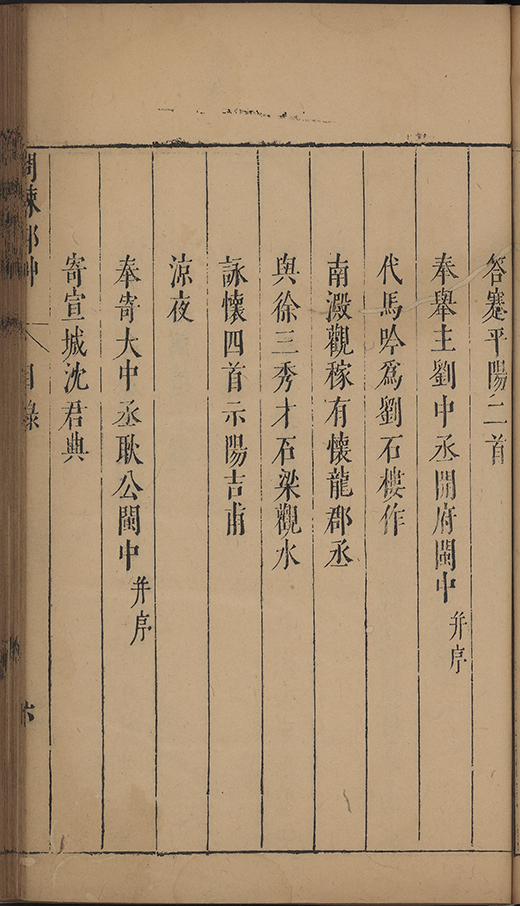 答蹇平陽二首
奉舉主劉中丞開府閩中 并序
代馬吟爲劉石樓作
南澱觀稼有懷龍郡丞
與徐三秀才石梁觀水
詠懷四首示陽吉甫
涼夜
奉寄大中丞耿公閩中 并序
寄宣城沈君典
目錄
六